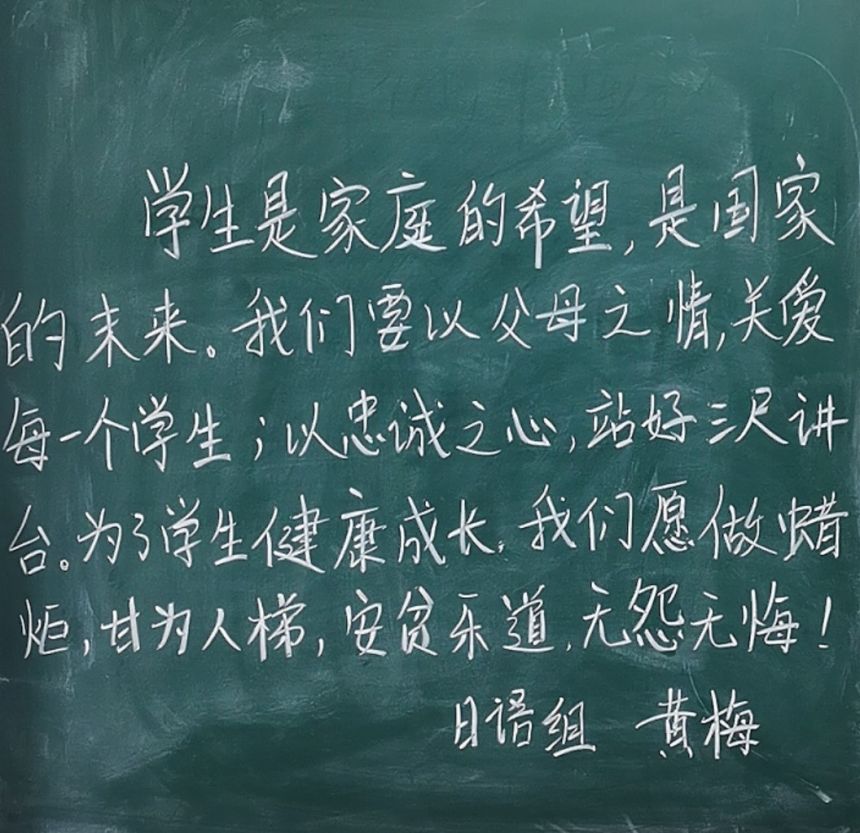 学生是家庭的希望,是国家
的未来。我们要以父母之情,关爱
每一个学生;以忠诚之心,站好三尺讲
台。为了学生健康成长,我们愿做蜡
炬,甘为人梯,安贫乐道,无怨无悔!
日语组 黄梅